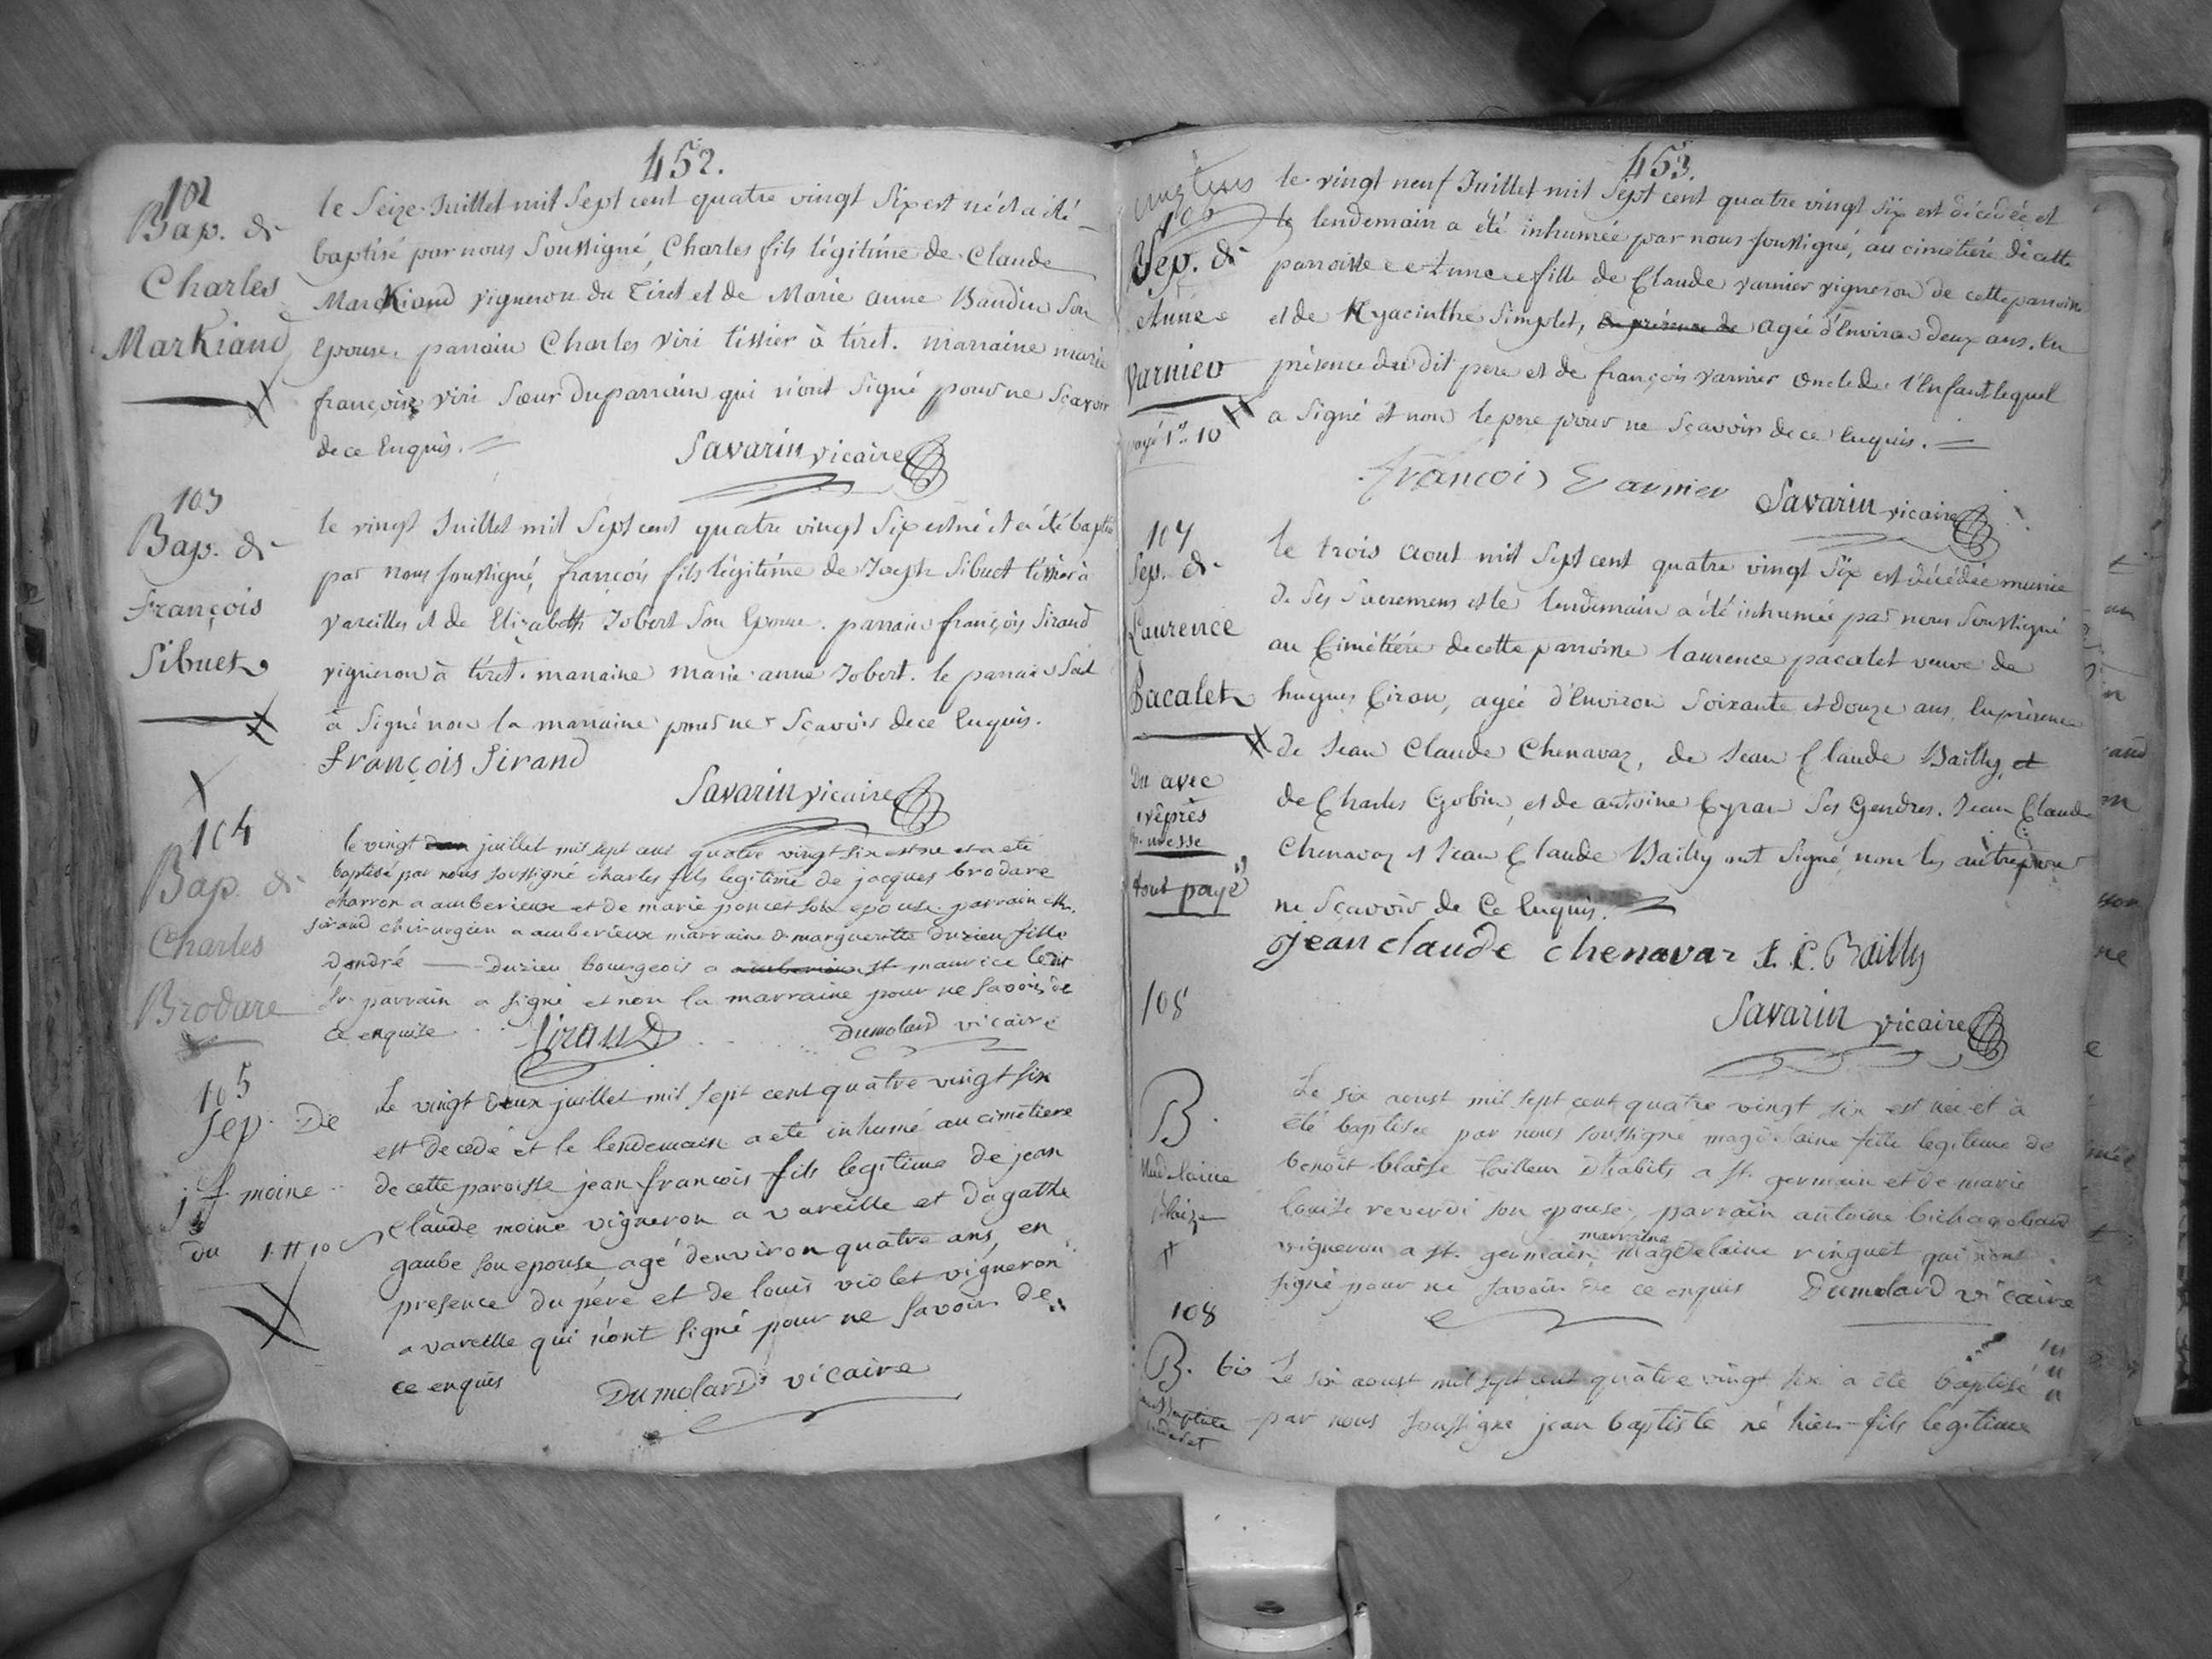 452.
102
Bap. de
Charles
Markiand
le Seize Juillet mil Sept cent quatre vingt Six est né et a été
baptisé par nous Soussigné, Charles fils légitime de Claude
Markiand vigneron du Tiret et de Marie anne Baudin Son
Epouse. parrain Charles viri tissier à tiret. marraine marie
françoise viri Sœur du parrain qui n'ont Signé pour ne Sçavoir
de ce Enquis.
Savarin vicaire
103
Bap. de
françois
Sibuet
le vingt Juillet mil Sept cent quatre vingt Six est né et a été baptisé
par nous soussigné, françois fils légitime de Joseph Sibuet tissier à
vareilles et de Elizabeth Jobert Son Epouse. parrain françois Sirand
vigneron à tiret. marraine marie anne Jobert. le parrain Seul
a Signé non la marraine pour ne Sçavoir de ce Enquis.
François Sirand
Savarin vicaire
104
Bap. de
Charles
Brodare
le vingt juillet mil sept cent quatre vingt six est né et a eté
baptisé par nous soussigné charles fils legitime de jacques brodare
charron a amberieux et de marie poncet son epouse. parrain
sirand chirurgien a amberieux marraine marguerite durieu fille
dandré — Durieu bourgeois a st maurice ledit
Sr. parrain a signé et non la marraine pour ne savoir de
ce enquise
Sirand
Dumolard vicaire
105
Sep. De
j f moine
du 1 tt 10 s
Le vingt deux juillet mil sept cent quatre vingt six
est decedé et le lendemain a eté inhumé au cimetiere
de cette paroisse jean francois fils legitime de jean
claude moine vigneron a vareille et dagathe
gaube son epouse, agé denviron quatre ans, en
presence du père et de louis violet vigneron
a vareille qui n'ont signé pour ne savoir de
ce enquis
Dumolard vicaire
453.
106
Sep. de
Anne
Varnier
payé 1 tt 10
le vingt neuf Juillet mil Sept cent quatre vingt Six est décédée et
le lendemain a été inhumée par nous soussigné, au cimetière de cette
parroisse Anne fille de Claude varnier vigneron de cette parroisse
et de Hyacinthe Simplet, en présence de agée d'Environ deux ans. En
présence du dit pere et de françois varnier oncle de l'Enfant lequel
a Signé et non le pere pour ne Sçavoir de ce Enquis.
François Varnier
Savarin vicaire
107
Sep. de
Laurence
Pacalet
Du avec
vêpres
messe
tout payé
le trois aout mil Sept cent quatre vingt Six est décédée munie
de Ses Sacremens et le lendemain a été inhumée par nous Soussigné
au Cimétiére de cette parroisse laurence pacalet veuve de
hugues Ciran, agée d'Environ Soixante et douze ans, En présence
de Jean Claude Chenavaz, de Jean Claude Bailly, et
de Charles Gobin, et de antoine Cyran Ses Gendres. Jean Claude
Chenavaz et Jean Claude Bailly ont Signé, non les autres pour
ne Sçavoir de Ce Enquis.
Jean claude chenavaz J. C. Bailly
Savarin vicaire
108
B.
Madelaine
Blaize
tt
Le six aoust mil sept cent quatre vingt six est née et a
été baptisée par nous soussigné magdelaine fille legitime de
benoit blaise tailleur Dhabits a st. germain et de marie
louise reverdi son epouse, parrain antoine bichagobard
vigneron a st. germain, marraine magdelaine ringuet qui n'ont
signé pour ne savoir de ce enquis Dumolard vicaire
108
B. bis
Le six aoust mil sept cent quatre vingt six a été baptisé
par nous soussigné jean baptiste né hier fils légitime